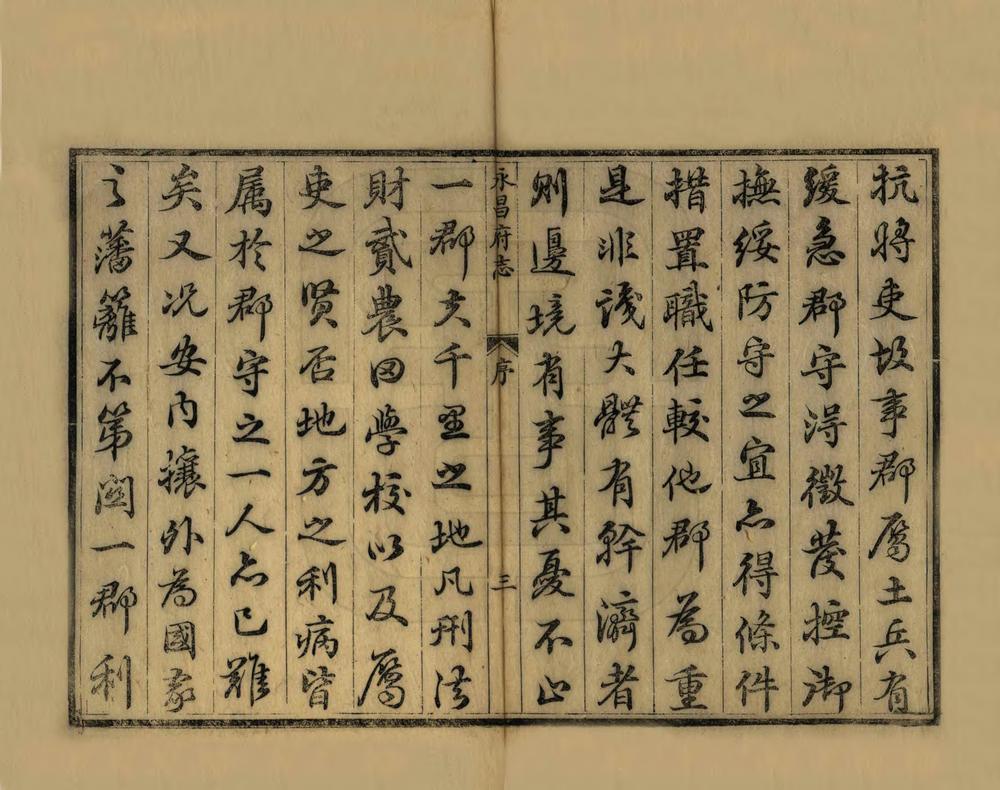 抗將吏故事郡屬土兵有
緩急郡守得徵發控御
撫綏防守之宜亦得條件
措置職任較他郡為重
是非識大體有幹濟者
則邊境有事其憂不止
永昌府志 序 三
一郡夫千里之地凡刑法
財貳農田學校以及屬
吏之贤否地方之利病皆
属於郡守之一人亦已難
矣又况安内攘外為國家
之藩籬不第關一郡利